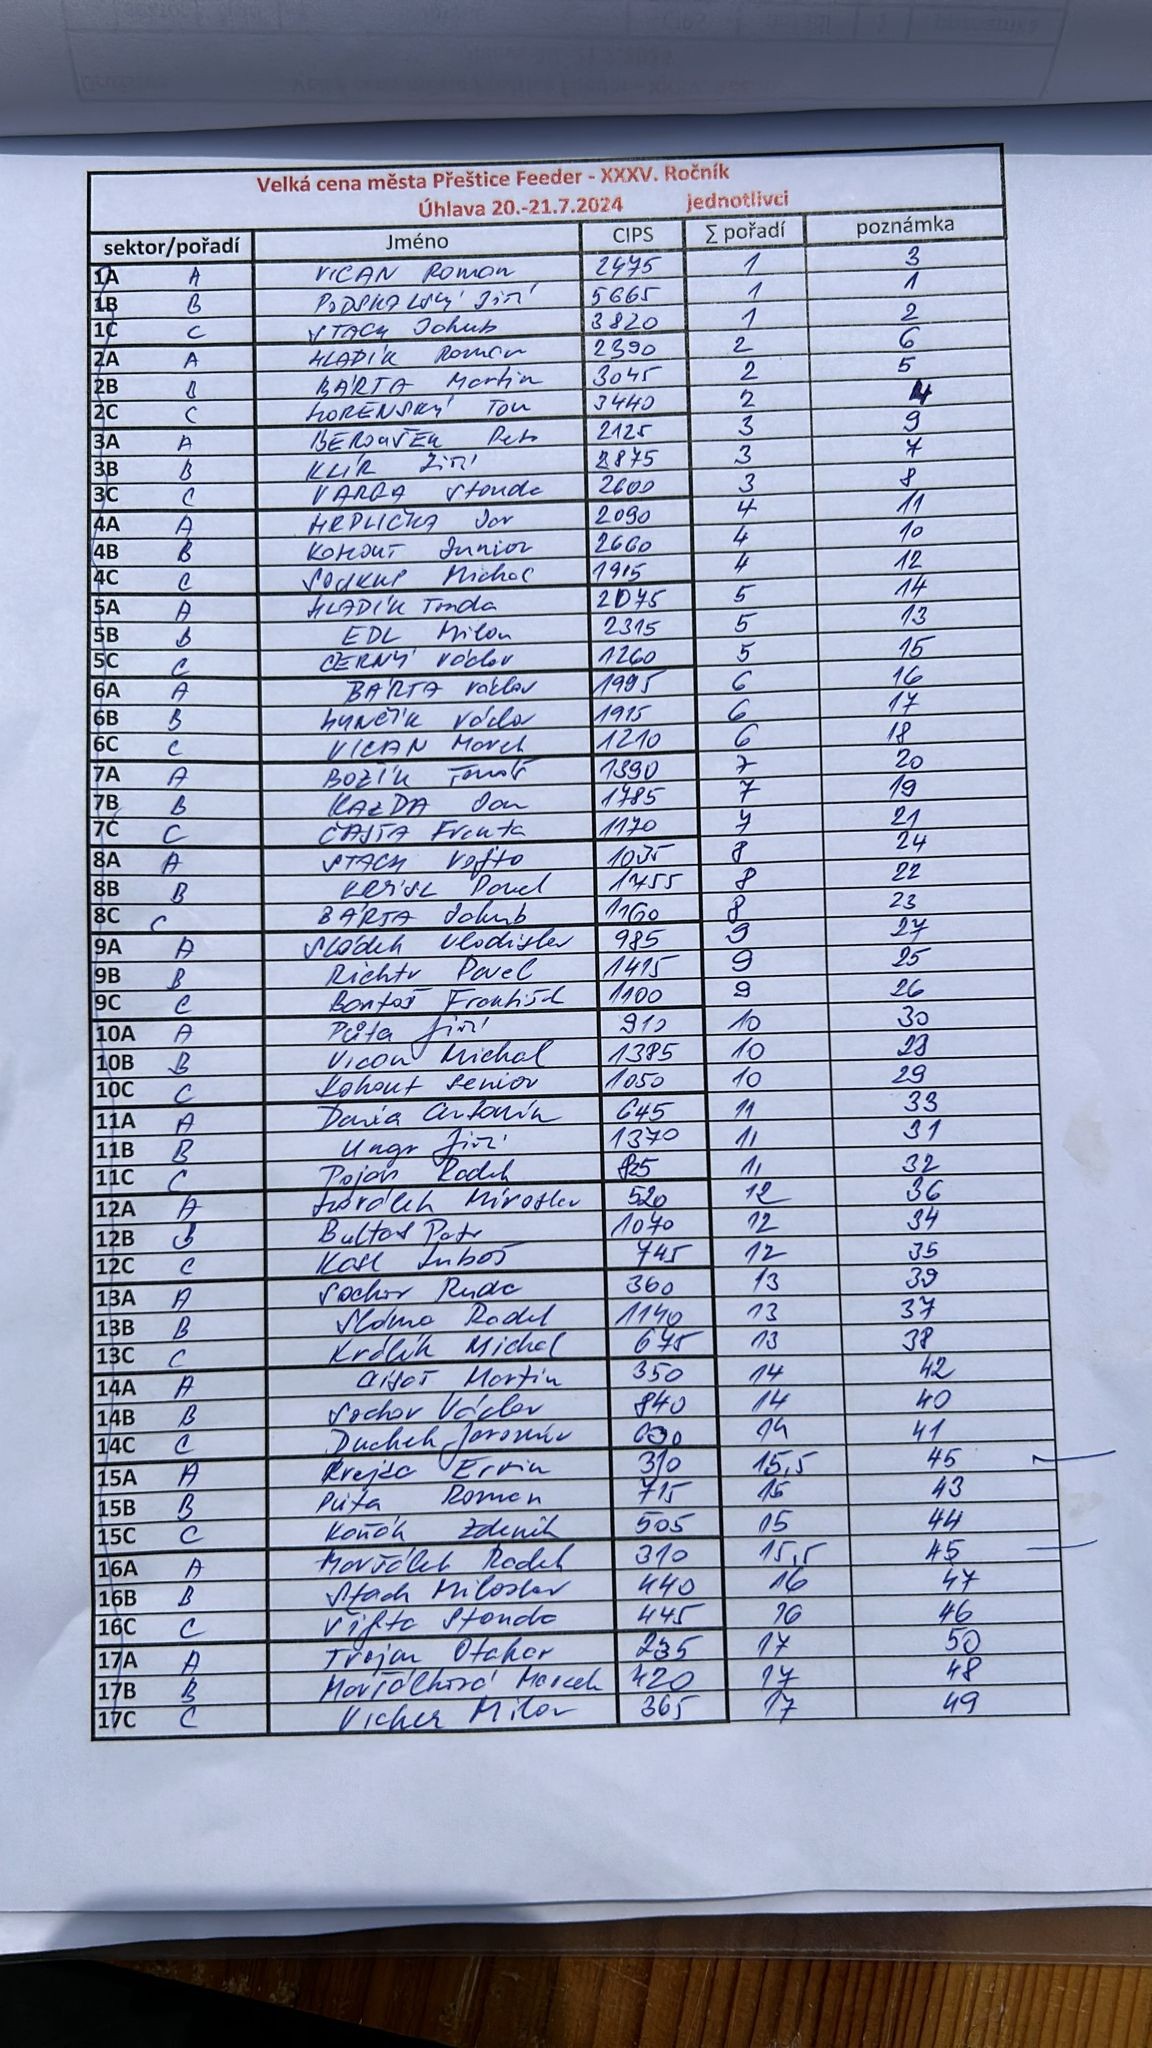 Velká cena města Přeštice Feeder - XXXV. Ročník
Úhlava 20.-21.7.2024 jednotlivci
sektor/pořadí Jméno CIPS ∑ pořadí poznámka
1A A VICAN Roman 2475 1 3
1B B PODSKALSKÝ Jiří 5665 1 1
1C C STACH Jakub 3820 1 2
2A A HLADÍK Roman 2390 2 6
2B B BÁRTA Martin 3045 2 5
2C C HORENSKÝ Tom 3440 2 4
3A A BEROUŠEK Petr 2125 3 9
3B B KLÍR Jiří 2875 3 7
3C C VARGA Standa 2600 3 8
4A A HRDLIČKA Jar 2090 4 11
4B B KOHOUT Junior 2660 4 10
4C C SOUKUP Michal 1915 4 12
5A A HLADÍK Tonda 2075 5 14
5B B EDL Milan 2315 5 13
5C C ČERNÝ Václav 1260 5 15
6A A BÁRTA Václav 1995 6 16
6B B HYNČÍK Václav 1915 6 17
6C C VICAN Marek 1210 6 18
7A A BOŽÍK Tomáš 1390 7 20
7B B KAZDA Jan 1785 7 19
7C C ČÁSTA Franta 1170 7 21
8A A STACH Vojta 1035 8 24
8B B Pavel 1455 8 22
8C C BÁRTA Jakub 1160 8 23
9A A Sládek Vladislav 985 9 27
9B B Richtr Pavel 1415 9 25
9C C Bartoš František 1100 9 26
10A A Půta Jiří 910 10 30
10B B Vican Michal 1385 10 28
10C C Kohout Senior 1050 10 29
11A A Antonín 645 11 33
11B B Ungr Jiří 1370 11 31
11C C Pojar Radek 825 11 32
12A A Miroslav 520 12 36
12B B Petr 1070 12 34
12C C Kasl Luboš 745 12 35
13A A Sochor Ruda 360 13 39
13B B Sláma Radek 1140 13 37
13C C Králík Michal 675 13 38
14A A Martin 350 14 42
14B B Sochor Václav 840 14 40
14C C Duchek Jaroslav 14 41
15A A Krejsa Ervin 310 15,5 45
15B B Půta Roman 715 15 43
15C C Koňák Zdeněk 505 15 44
16A A Maršálek Radek 310 15,5 45
16B B Stach Miloslav 440 16 47
16C C Šifta Standa 445 16 46
17A A Trojan Otakar 235 17 50
17B B Maršálková 420 17 48
17C C Vicher Milan 365 17 49